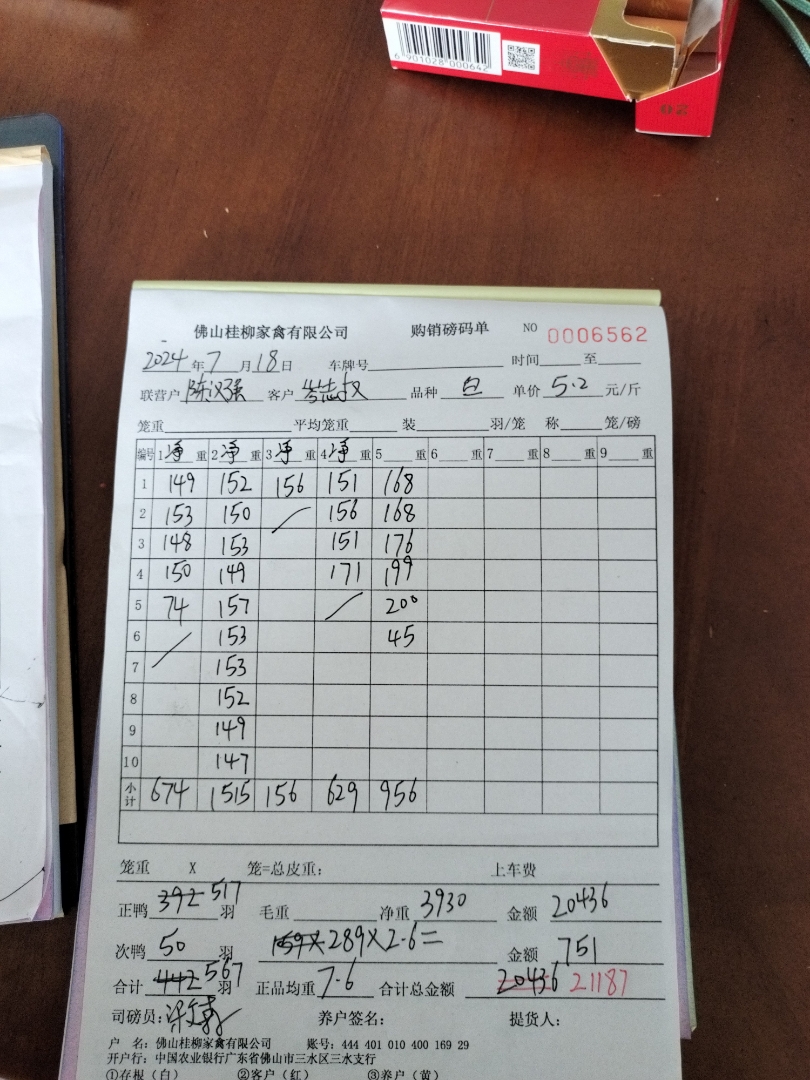 6 901028 000642
02
佛山桂柳家禽有限公司 购销磅码单 NO 0006562
2024年7月18日 车牌号 时间 至
联营户 陈汉强 客户 岑志权 品种 白 单价 5.2 元/斤
笼重 平均笼重 装 羽/笼 称 笼/磅
编号 1净重 2净重 3净重 4净重 5重 6重 7重 8重 9重
1 149 152 156 151 168
2 153 150 156 168
3 148 153 151 176
4 150 149 171 199
5 74 157 200
6 153 45
7 153
8 152
9 149
10 147
小计 674 1515 156 629 956
笼重 X 笼=总皮重: 上车费
正鸭 392 517 羽 毛重 净重 3930 金额 20436
次鸭 50 羽 159X 289X2.6= 金额 751
合计 442 567 羽 正品均重 7.6 合计总金额 20436 21187
司磅员: 养户签名: 提货人:
户 名: 佛山桂柳家禽有限公司 账号: 444 401 010 400 169 29
开户行: 中国农业银行广东省佛山市三水区三水支行
①存根(白) ②客户(红) ③养户(黄)